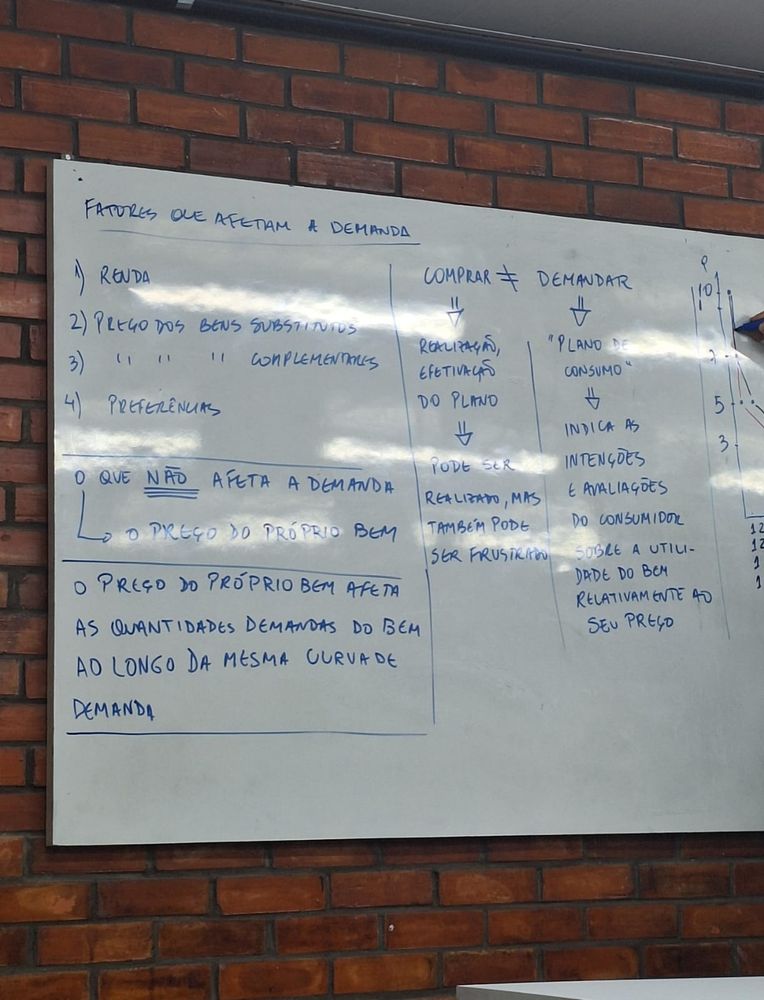 FATORES QUE AFETAM A DEMANDA
1) RENDA
2) PREÇO DOS BENS SUBSTITUTOS
3) " " " COMPLEMENTARES
4) PREFERÊNCIAS
O QUE NÃO AFETA A DEMANDA
O PREÇO DO PRÓPRIO BEM
O PREÇO DO PRÓPRIO BEM AFETA
AS QUANTIDADES DEMANDAS DO BEM
AO LONGO DA MESMA CURVA DE
DEMANDA
COMPRAR ≠ DEMANDAR
⇓
REALIZAÇÃO,
EFETIVAÇÃO
DO PLANO
⇓
PODE SER
REALIZADO, MAS
TAMBÉM PODE
SER FRUSTRADO
⇓
"PLANO DE
CONSUMO"
⇓
INDICA AS
INTENÇÕES
E AVALIAÇÕES
DO CONSUMIDOR
SOBRE A UTILI-
DADE DO BEM
RELATIVAMENTE AO
SEU PREÇO
P
10
7
5
3
12
12
1
1